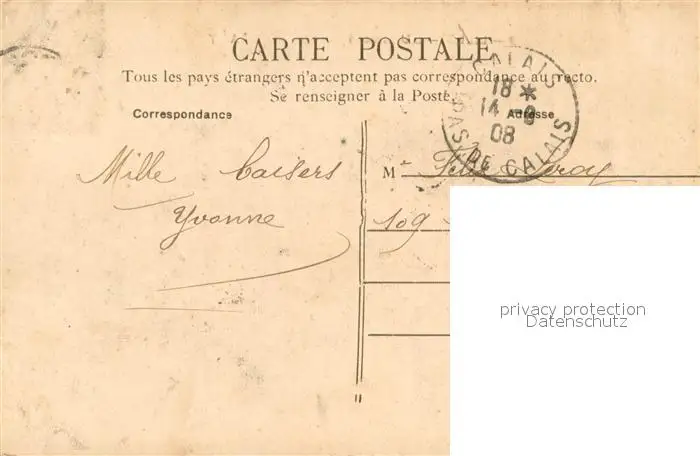 CARTE POSTALE
Tous les pays étrangers n'acceptent pas correspondance au recto.
Se renseigner à la Poste.
Correspondance
Adresse
CALAIS
18 *
14 -9
08
PAS DE CALAIS
Mille baisers
Yvonne
M
109
privacy protection
Datenschutz